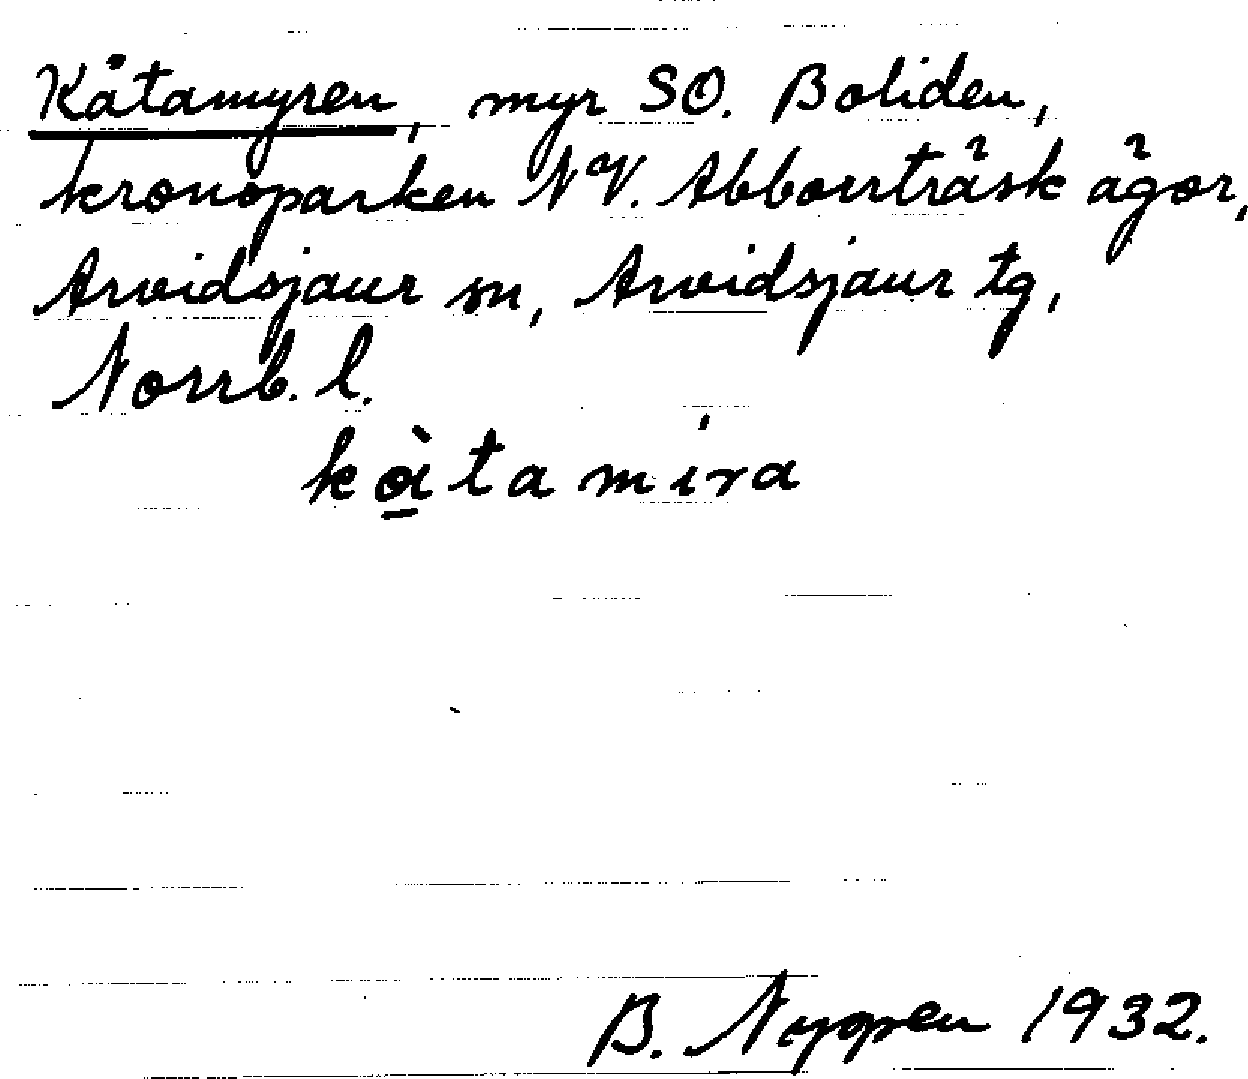 Kåtamyren, myr SO. Boliden,
kronoparken NV. Abborrträsk ägor,
Arvidsjaur sn, Arvidsjaur tg,
Norrb. l.
kà̱tamira
B. Nyppen 1932.